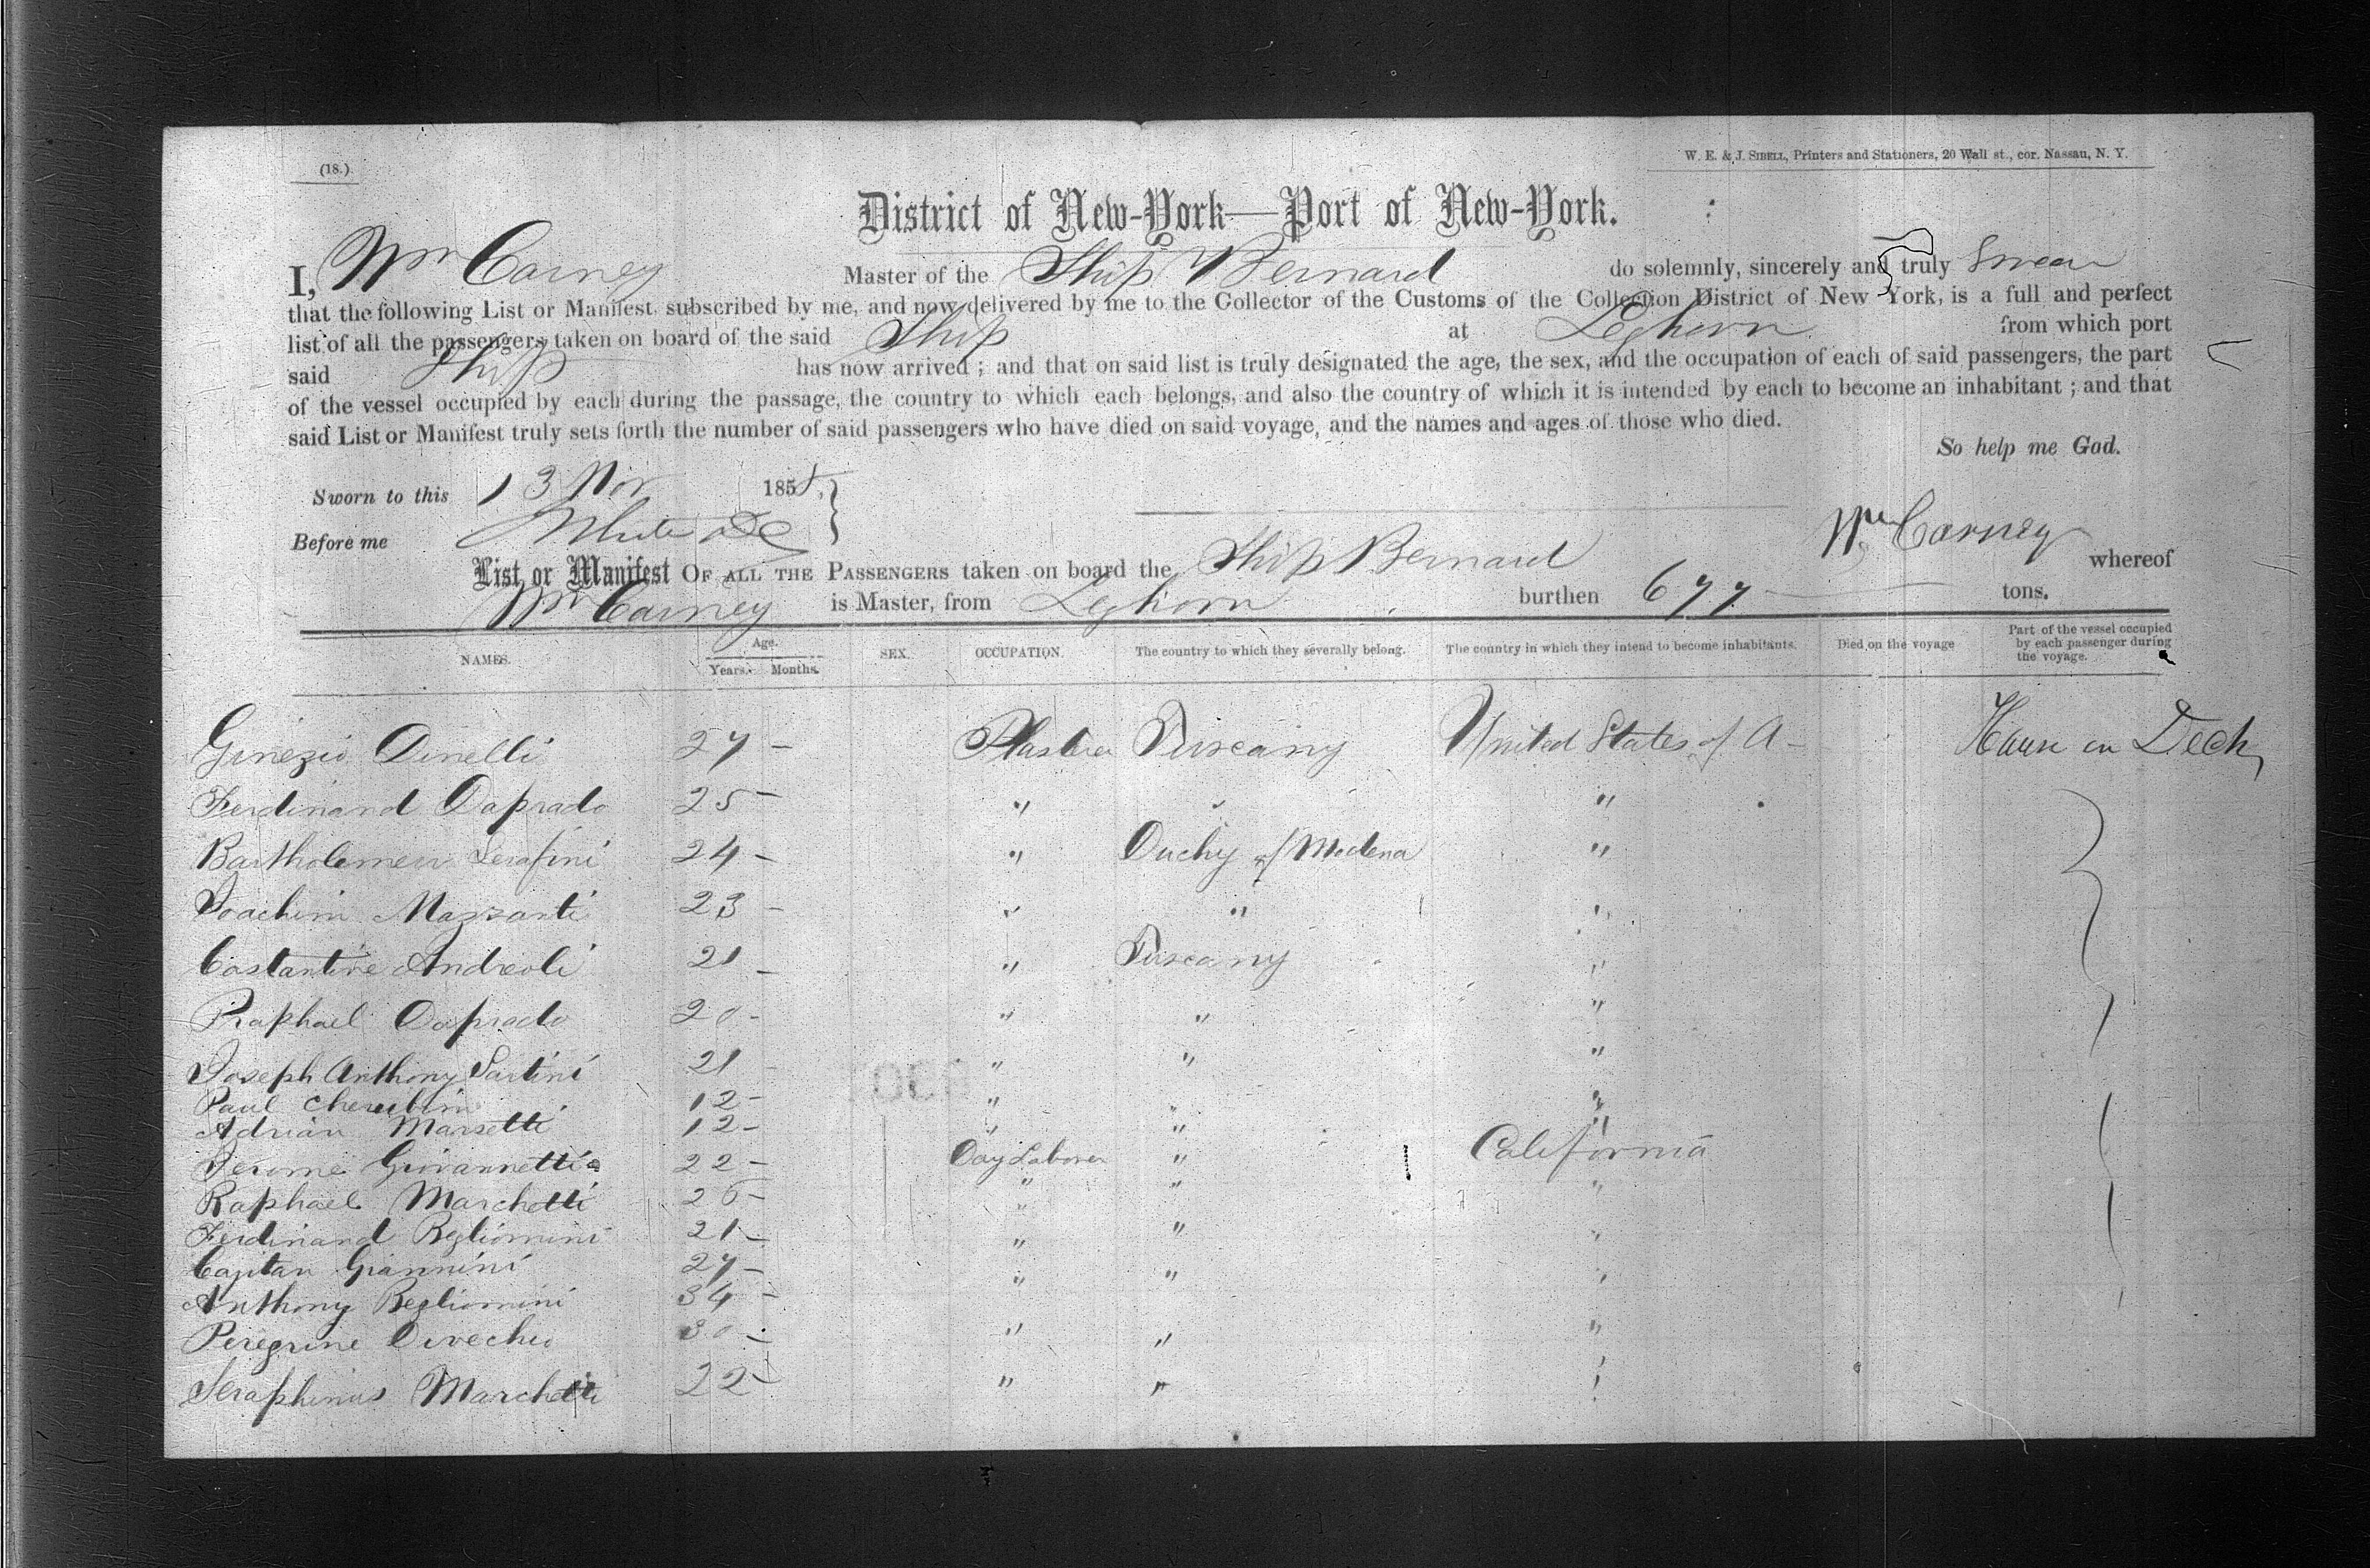 (18.)
W. E. & J. SIBELL, Printers and Stationers, 20 Wall st., cor. Nassau, N. Y.
District of New-York—Port of New-York.
I, Wm Carney Master of the Ship Bernard do solemnly, sincerely and truly Swear
that the following List or Manifest, subscribed by me, and now delivered by me to the Collector of the Customs of the Collection District of New York, is a full and perfect
list of all the passengers taken on board of the said Ship at Leghorn from which port
said Ship has now arrived; and that on said list is truly designated the age, the sex, and the occupation of each of said passengers, the part
of the vessel occupied by each during the passage, the country to which each belongs, and also the country of which it is intended by each to become an inhabitant; and that
said List or Manifest truly sets forth the number of said passengers who have died on said voyage, and the names and ages of those who died.
So help me God.
Sworn to this 13 Nov 185
Before me
Wm Carney
List or Manifest OF ALL THE PASSENGERS taken on board the Ship Bernard whereof
Wm Carney is Master, from Leghorn burthen 677 tons.
NAMES. Age. Years. Months. SEX. OCCUPATION. The country to which they severally belong. The country in which they intend to become inhabitants. Died on the voyage Part of the vessel occupied by each passenger during the voyage.
Ginezio Dinelli 27 - Plasterer Tuscany United States of A - House on Deck
Ferdinand Daprado 25 - " " "
Bartholomew Serafini 24 - " Duchy of Modena "
Joachim Mazzanti 23 - " " "
Costantine Andreoli 21 - " Tuscany "
Raphael Daprado 20 - " " "
Joseph Anthony Sartini 21 - " " "
Paul Cherubim 12 - " " "
Adrian Marsetti 12 - " " "
Jerome Giovannetti 22 - Day Laborer " California
Raphael Marchetti 26 - " " "
Ferdinand Regliomini 21 - " " "
Cajitan Giannini 27 - " " "
Anthony Regliomini 34 -
Peregrine Divechio 30 - " " "
Seraphinus Marchetti 22 - " " "